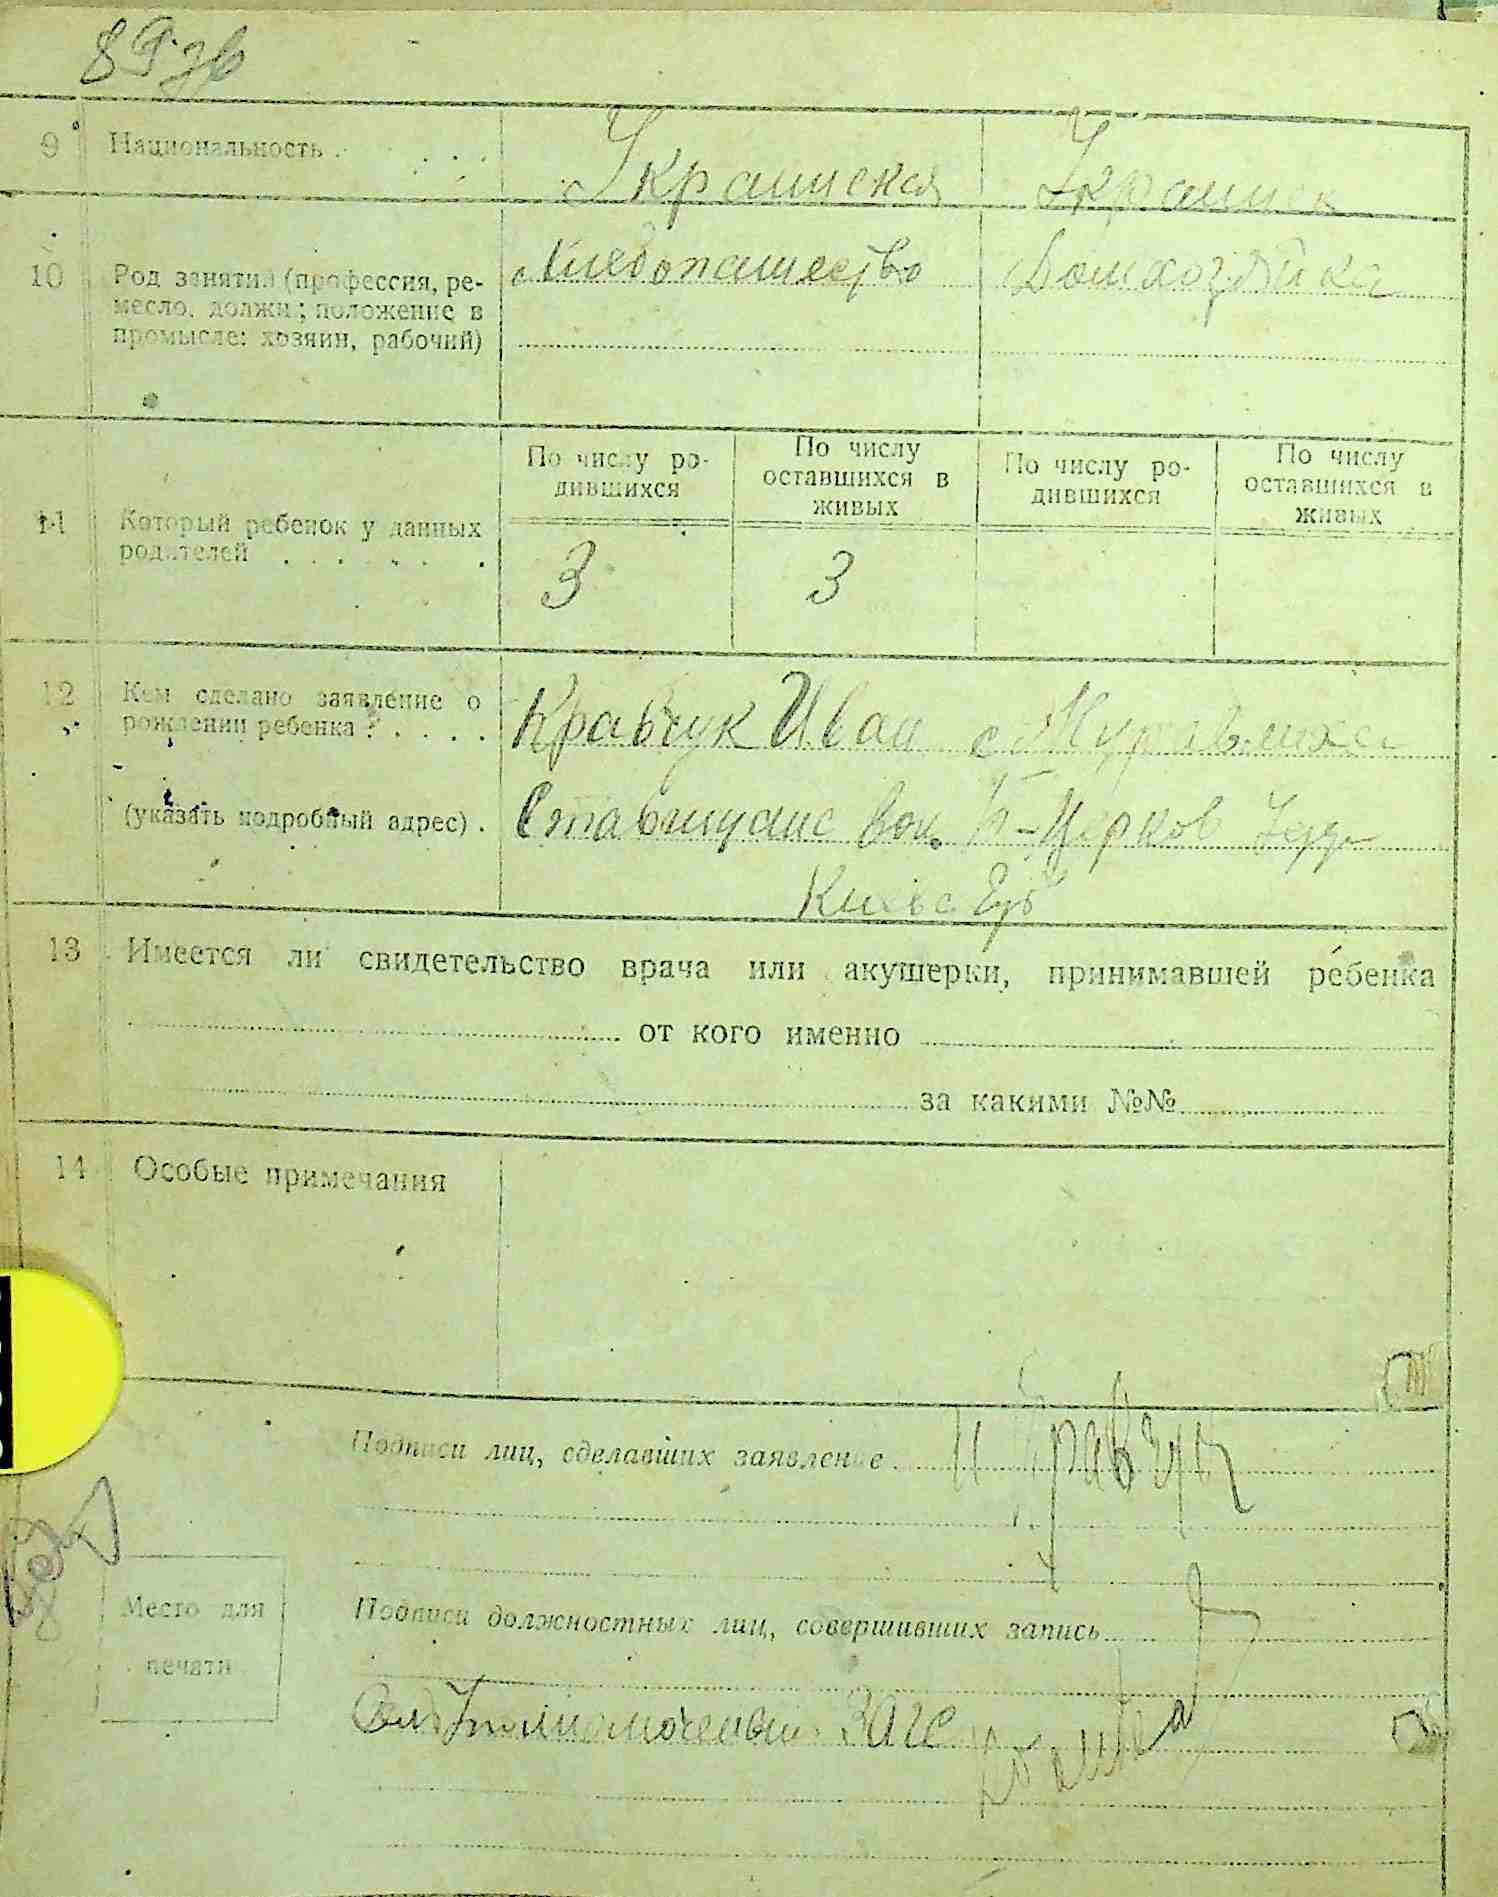 89 зв
9 Национальность . Украинская Украинск
10 Род занятий (профессия, ре- Хлебопашество Домхозяйка
месло, должн.; положение в
промысле: хозяин, рабочий)
По числу ро- По числу По числу ро- По числу
дившихся оставшихся в дившихся оставшихся в
живых живых
11 Который ребенок у данных
родителей . . . . . . 3 3
12 Кем сделано заявление о
рождении ребенка? . . . . Кравчук Иван с Журавлиха
(указать подробный адрес) . Ставищанс вол. Б-Церков
Киевс Губ
13 Имеется ли свидетельство врача или акушерки, принимавшей ребенка
от кого именно
за какими №№
14 Особые примечания
Подписи лиц, сделавших заявление И Кравчук
Место для Подписи должностных лиц, совершивших запись
печати
ЗАГС